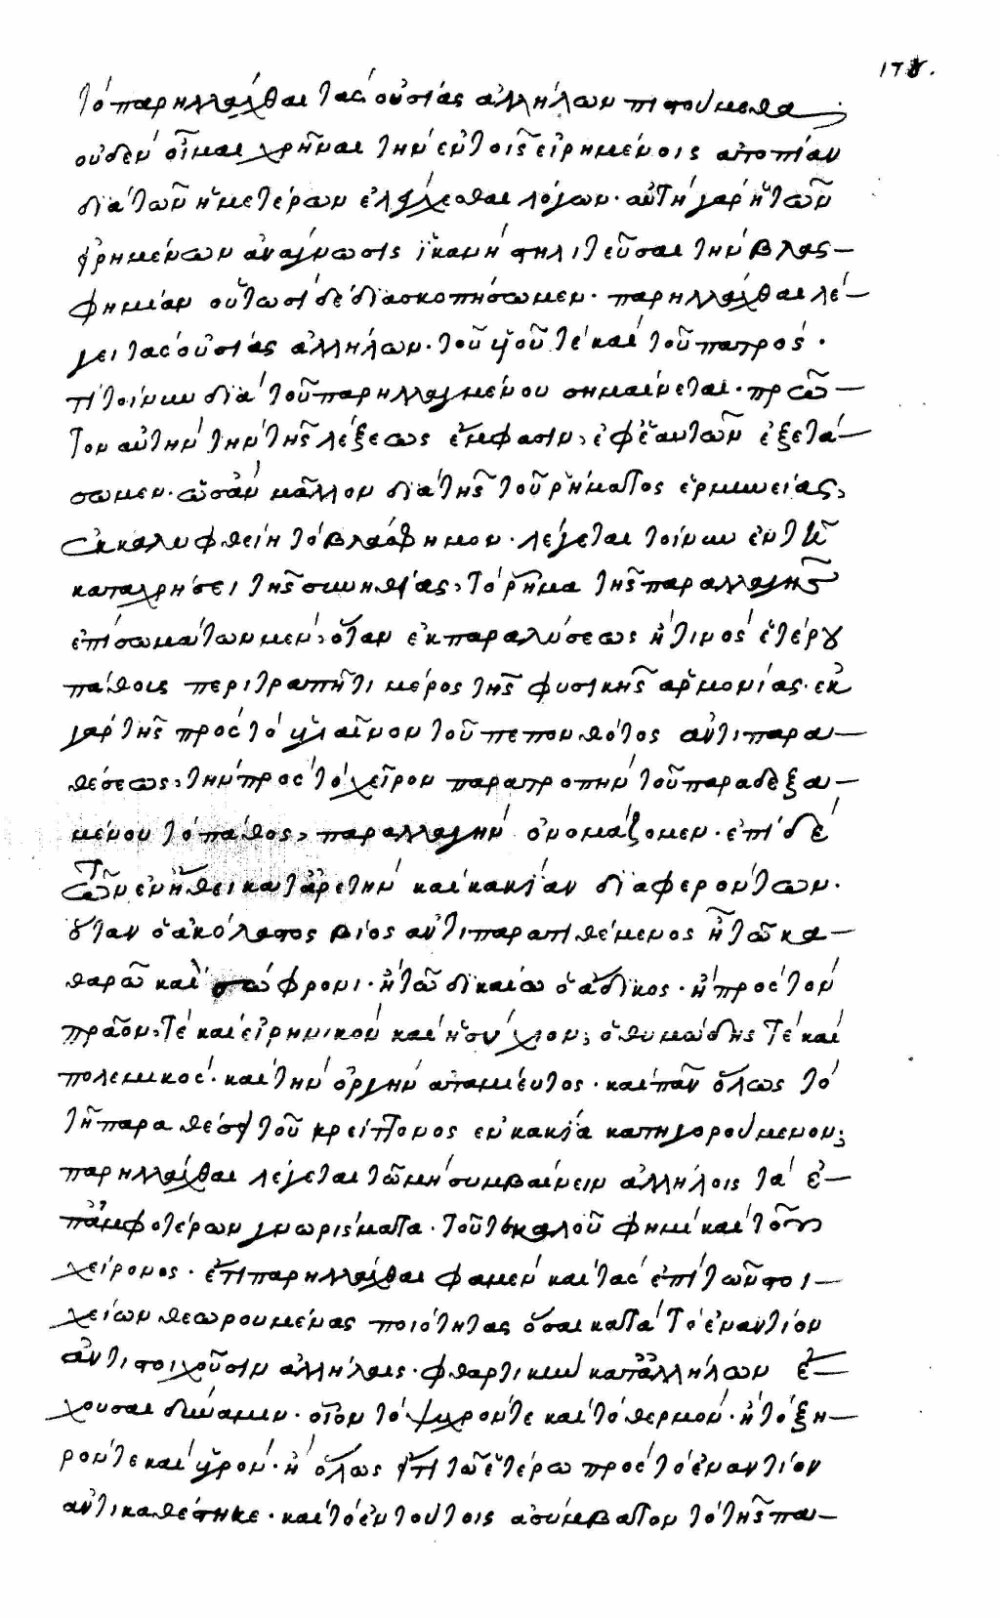 ιτγ.
τὸ παρηλλάχθαι τὰς οὐσίας ἀλλήλων πιστούμεθα
οὐδὲν οἶμαι χρῆναι τὴν ἐν τοῖς εἰρημένοις ἀτοπίαν
διὰ τῶν ἡμετέρων ἐλέγχεσθαι λόγων· αὐτὴ γὰρ ἡ τῶν
εἰρημένων ἀνάγνωσις ἱκανὴ στηλιτεῦσαι τὴν βλας–
φημίαν οὕτωσὶ δὲ διασκοπήσωμεν· παρηλλάχθαι λέ–
γει τὰς οὐσίας ἀλλήλων· τοῦ υἱοῦ τὲ καὶ τοῦ πατρός·
τί τοίνυν διὰ τοῦ παρηλλαγμένου σημαίνεται· πρῶ–
τον αὐτὴν τὴν τῆς λέξεως ἔμφασιν, ἐφ' ἑαυτῶν ἐξετά–
σωμεν· ὡς ἂν μᾶλλον διὰ τῆς τοῦ ῥήματος ἑρμηνείας,
ἐκκαλυφθείη τὸ βλάσφημον· λέγεται τοίνυν ἐν τῇ
καταχρήσει τῆς συνηθείας, τὸ ῥῆμα τῆς παραλλαγῆς
ἐπὶ σωμάτων μέν, ὅταν ἐκ παραλύσεως ἤ τινος ἑτέρου
πάθους περιτραπῇ τι μέρος τῆς φυσικῆς ἁρμονίας· ἐκ
γὰρ τῆς πρὸς τὸ ὑγιαῖνον τοῦ πεπονθότος ἀντιπαρα–
θέσεως, τὴν πρὸς τὸ χεῖρον παρατροπὴν τοῦ παραδεξα–
μένου τὸ πάθος, παραλλαγὴν ὀνομάζομεν· ἐπὶ δὲ
τῶν ἐν ἤθει κατ' ἀρετὴν καὶ κακίαν διαφερόντων·
ὅταν ὁ ἀκόλαστος βίος ἀντιπαρατιθέμενος ἢ τῶ κα–
θαρῶ καὶ σώφρονι· ἢ τῶ δικαίω ὁ ἄδικος· ἢ πρὸς τὸν
πρᾶον, τὲ καὶ εἰρηνικὸν καὶ ἡσύχιον, ὁ θυμώδης τὲ καὶ
πολεμικός· καὶ τὴν ὀργὴν ἀταμίευτος· καὶ πᾶν ὅλως τὸ
τῇ παραθέσει τοῦ κρείττονος ἐν κακία κατηγορούμενον,
παρηλλάχθαι λέγεται τῶ μὴ συμβαίνειν ἀλλήλοις τὰ ἐ–
π' ἀμφοτέρων γνωρίσματα· τοῦ τὲ καλοῦ φημὶ καὶ τοῦ
χείρονος· ἔτι παρηλλάχθαι φαμὲν καὶ τὰς ἐπὶ τῶν στοι–
χείων θεωρουμένας ποιότητας ὅσαι κατὰ τὸ ἐναντίον
ἀντιστοιχοῦσιν ἀλλήλαις· φθαρτικὴν κατ' ἀλλήλων ἔ–
χουσαι δύναμιν· οἷον τὸ ψυχρόν τε καὶ τὸ θερμόν· ἢ τὸ ξη–
ρόν τε καὶ ὑγρόν· ἢ ὅλως εἴ τι τῶ ἑτέρω πρὸς τὸ ἐναντίον
ἀντικαθέστηκε· καὶ τὸ ἐν τούτοις ἀσύμβατον τὸ τῆς πα–